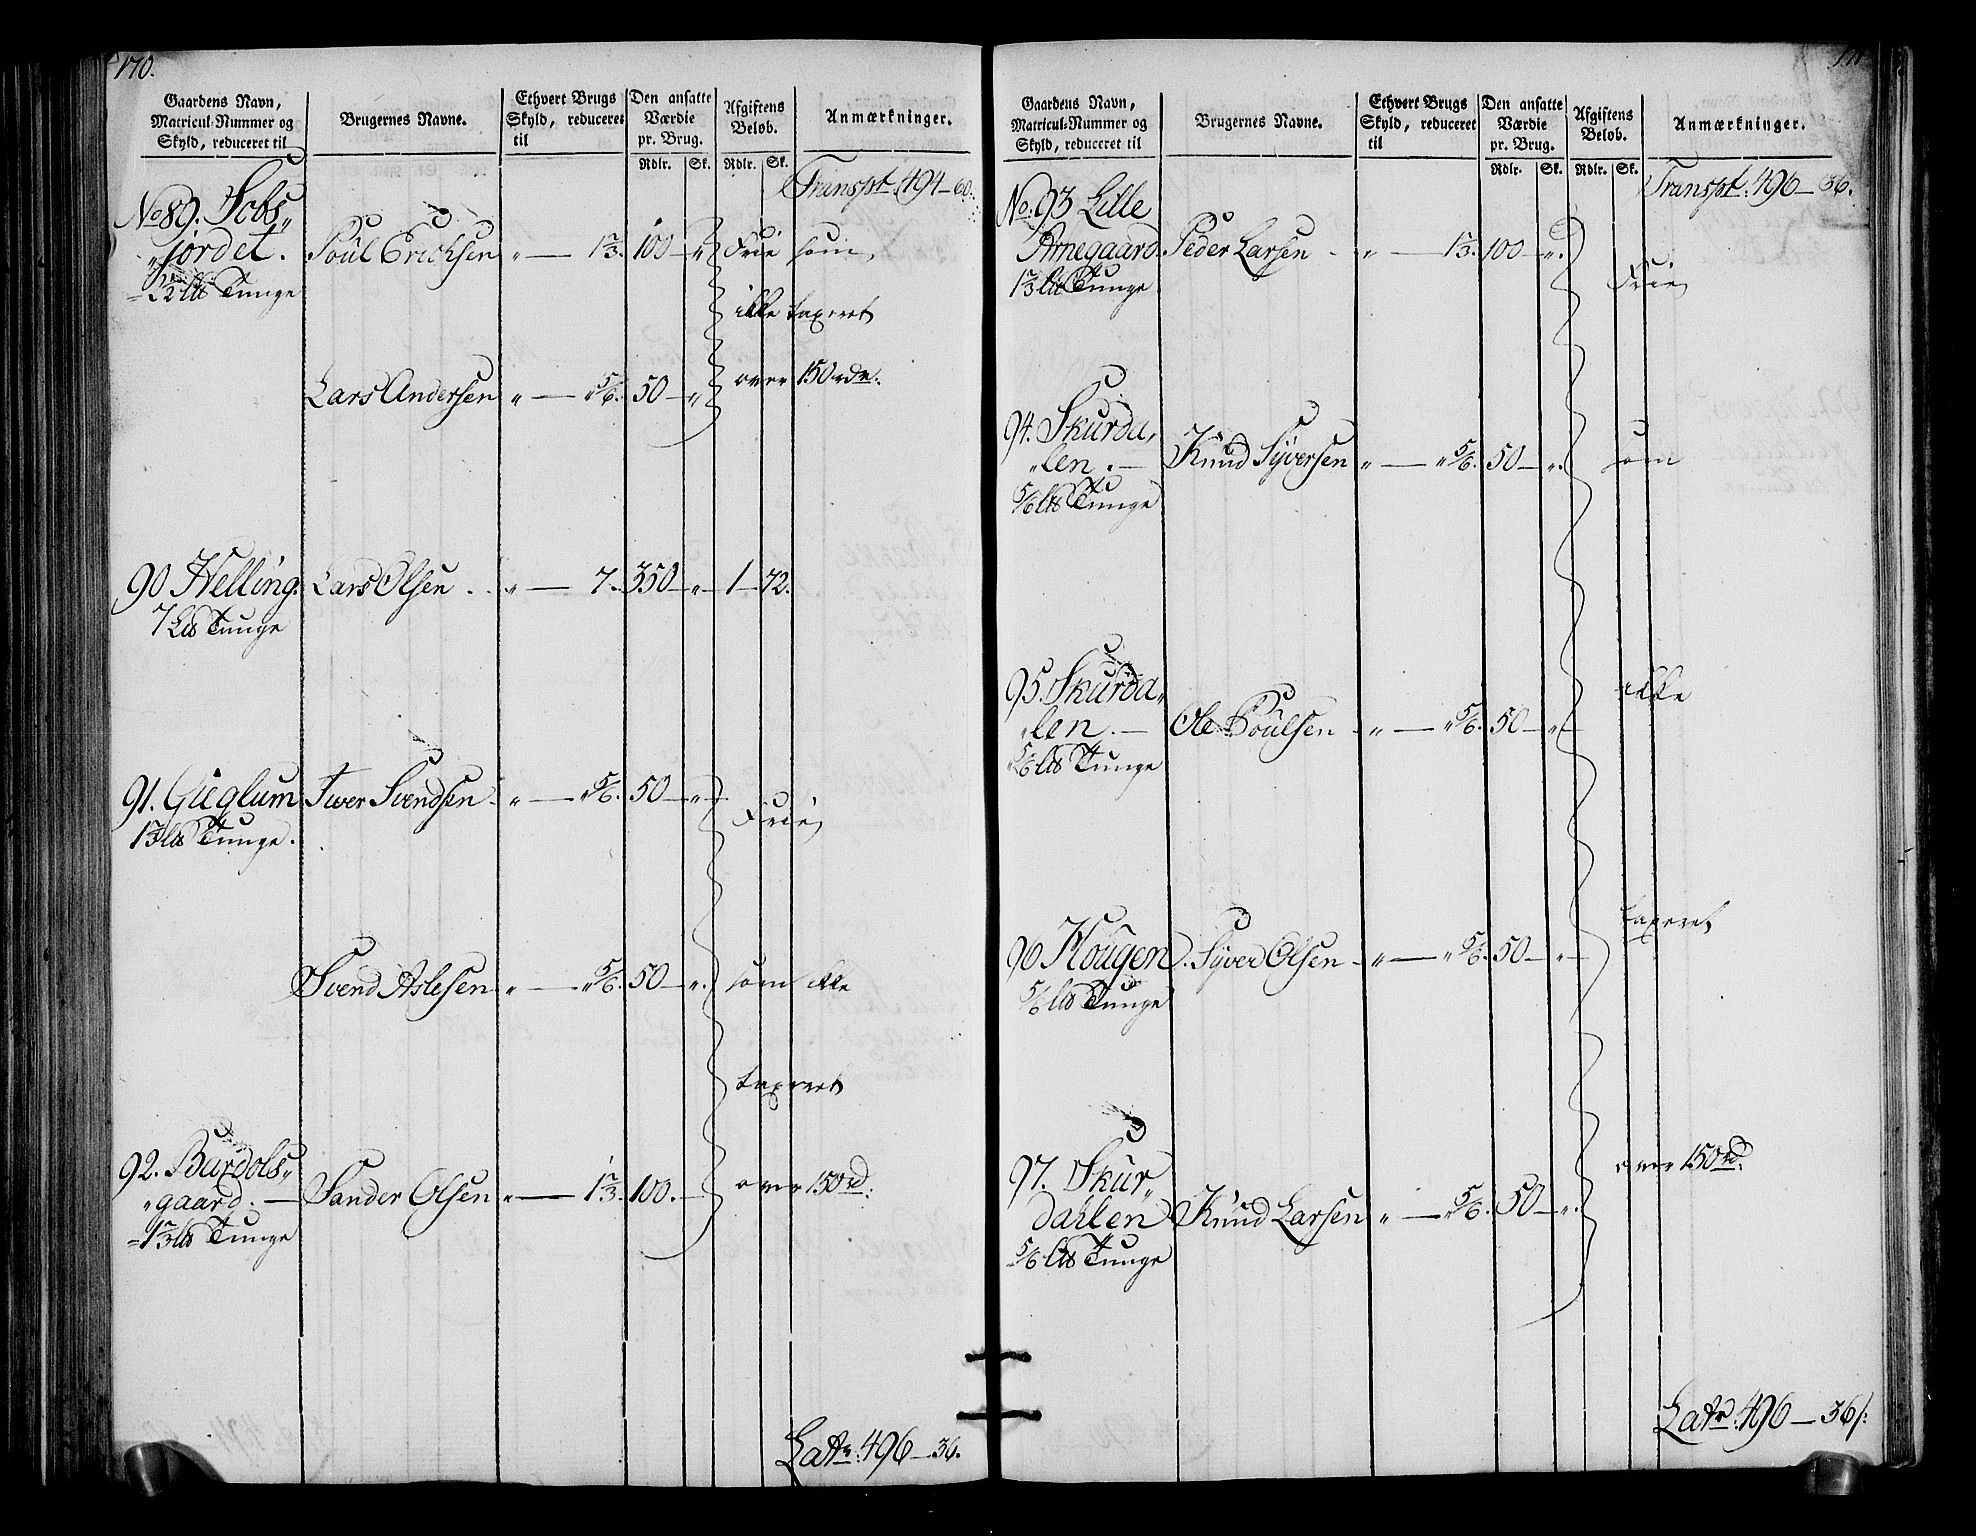 170.
Gaardens Navn, Matricul-Nummer og Skyld, reduceret til
Brugernes Navne.
Ethvert Brugs Skyld, reduceret til
Den ansatte Værdie pr. Brug.
Afgiftens Beløb.
Anmærkninger.
Rdlr. Sk. Rdlr. Sk.
Transpt. 494 — 60.
No 89. Jobs„
„jordet. Poul Erichsen „ — 1⅔. 100 — „ Frie som
2½ lb Tunge
ikke taxeret
Lars Andersen „ — „ 5/6. 50 — „ over 150 rdr.
90 Helling. Lars Olsen . . „ — 7. 350 — „ — 1 — 72.
7 Lb Tunge
91. Gieglum Iver Svendsen „ — „ 5/6. 50 — „ — Frie
1⅔ lb Tunge.
Svend Aslesen „ — „ 5/6. 50 — „. som ikke
taxeret
92. Bardols„
„gaard. — Sander Olsen „ — 1⅔. 100. — over 150 rd:
1⅔ lb Tunge
Latr. 496 — 36.
171
Gaardens Navn, Matricul-Nummer og Skyld, reduceret til
Brugernes Navne.
Ethvert Brugs Skyld, reduceret til
Den ansatte Værdie pr. Brug.
Afgiftens Beløb.
Anmærkninger.
Rdlr. Sk. Rdlr. Sk.
Transpt. 496 — 36.
No. 93 Lille
Arnegaard. Peder Larsen - „ — 1⅔. 100 — „.
1⅔ lb Tunge Frie
94. Skurda„
„len. — Knud Syversen „ — „ 5/6. 50 — „. som
5/6 lb Tunge
95. Skurda„ ikke
„len. — Ole Poulsen - „ — „ 5/6. 50 — „ —
5/6 lb Tunge
taxeret
96 Hougen. Syver Olsen - „ — „ 5/6. 50 — „ —
5/6 lb Tunge
97. Skur„ over 150 rd:
dahlen Knud Larsen „ — „ 5/6. 50 — „.
5/6 lb Tunge
Latr. 496 — 36/: